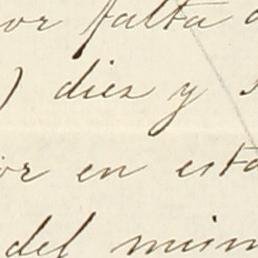 or falta
) diez y
or en esta
del mism